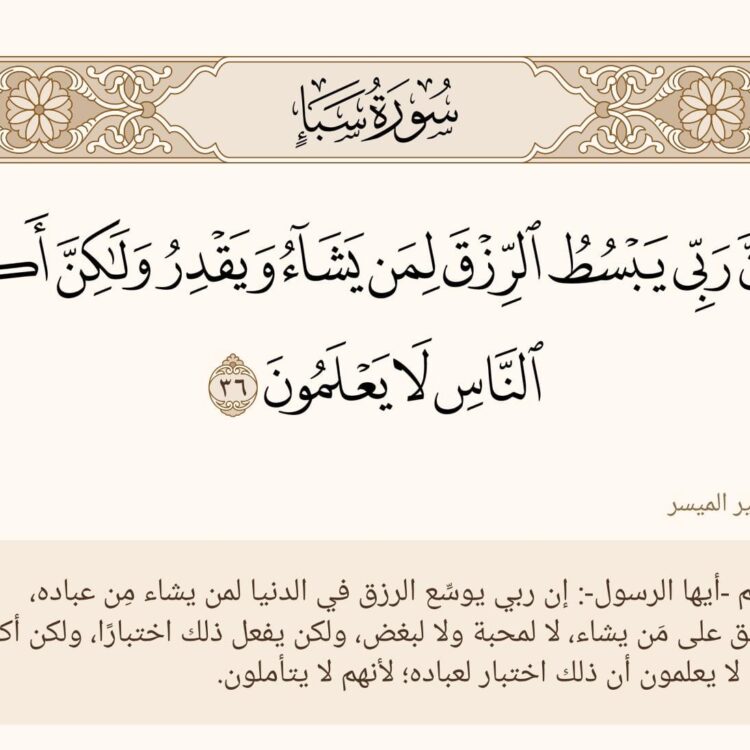 سُورَةُ سَبَإٍ
رَبِّي يَبْسُطُ ٱلرِّزْقَ لِمَن يَشَآءُ وَيَقْدِرُ وَلَٰكِنَّ
ٱلنَّاسِ لَا يَعْلَمُونَ ٣٦
الميسر
-أيها الرسول-: إن ربي يوسِّع الرزق في الدنيا لمن يشاء مِن عباده،
على مَن يشاء، لا لمحبة ولا لبغض، ولكن يفعل ذلك اختبارًا، ولكن
لا يعلمون أن ذلك اختبار لعباده؛ لأنهم لا يتأملون.